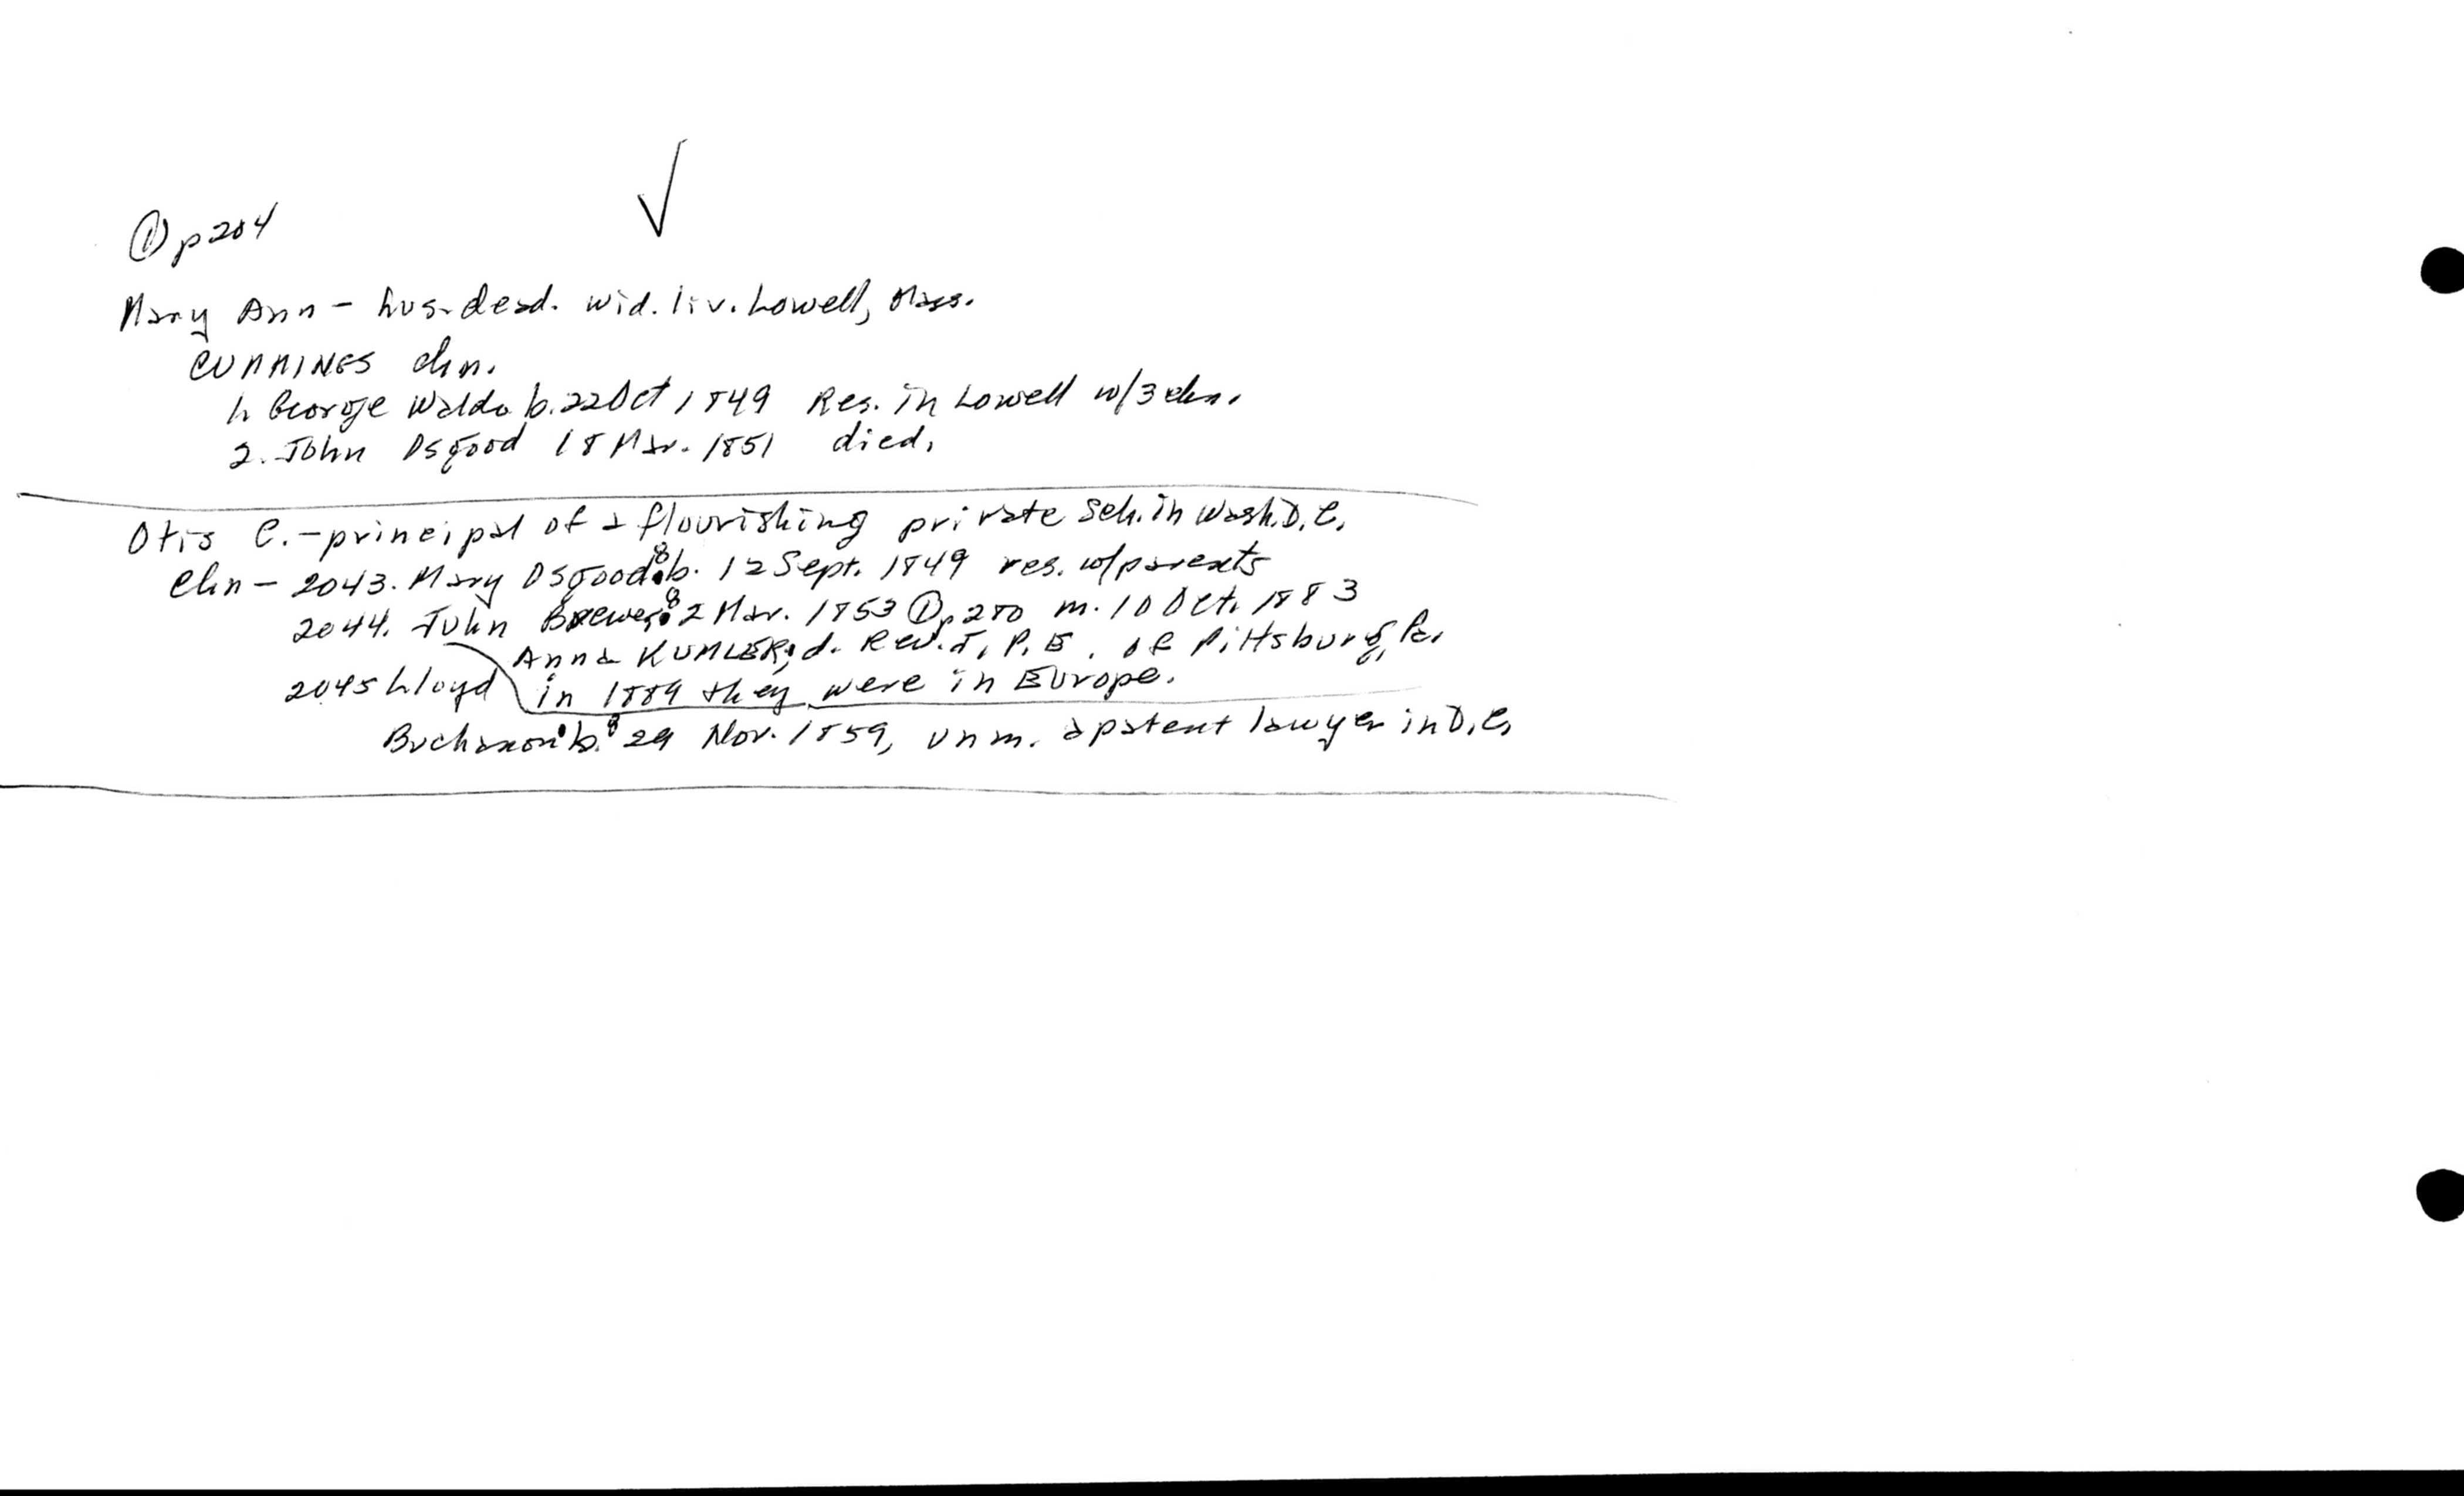 ✓
① p 204
Mary Ann - hus. dead. wid. liv. Lowell, Mass.
CUMMINGS chn.
1. George Waldo b. 22 Oct 1849 Res. in Lowell w/3 chn.
2. John Osgood 18 Mar. 1851 died.
Otis C. - principal of a flourishing private Sch. in Wash. D.C.
Chn - 2043. Mary Osgood⁸ b. 12 Sept. 1849 res. w/parents
2044. John Brewer⁸ 2 Mar. 1853 ① p 280 m. 10 Oct. 1883
Anna KUMLER, d. Rev. J. P. E. of Pittsburg, Pa.
2045 Lloyd in 1889 they were in Europe.
Buchanan⁸ b. 29 Nov. 1859, unm. a patent lawyer in D.C.